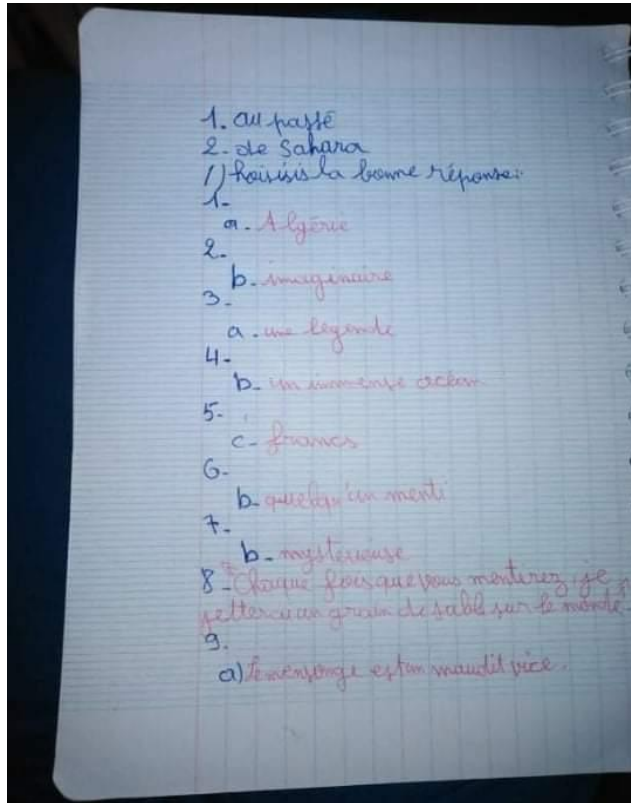 1. au passé
2. de Sahara
1) hoisisis la bonne réponse:
1-
a. Algérie
2.
b. imaginaire
3.
a. une légende
4-
b. un immense océan
5.
c- francs
6-
b. quelqu'un menti
7.
b- mysterieuse
8- Chaque fois que vous mentirez, je
jetterai un grain de sable sur le monde.
9.
a) Le mensonge est un maudit vice.